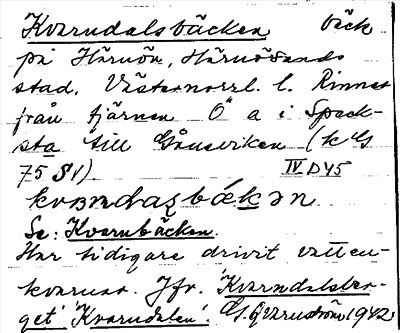 Kvarndalsbäcken bäck
på Härnön, Härnösands
stad, Västernorrl. l. Rinner
från tjärnen Ö a i Spack-
sta till Gånsviken (k G
75 SV) IV D45
kvɑɳdaʂbɛ́kən
Se: Kvarnbäcken.
Har tidigare drivit vatten-
kvarnar. Jfr. 'Kvarndalsber-
get' 'Kvarndalen'. G. Qvarnström 1942